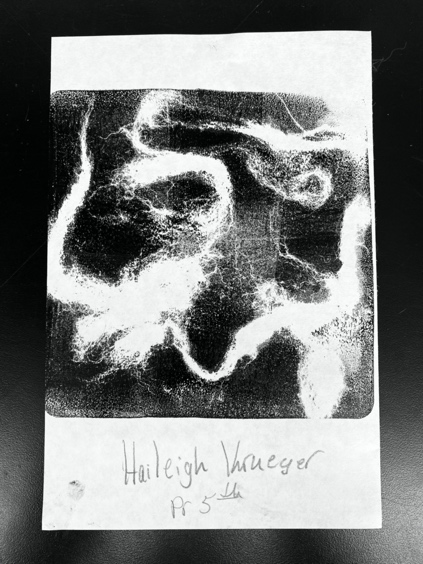 Haileigh Krueger
Pr 5th